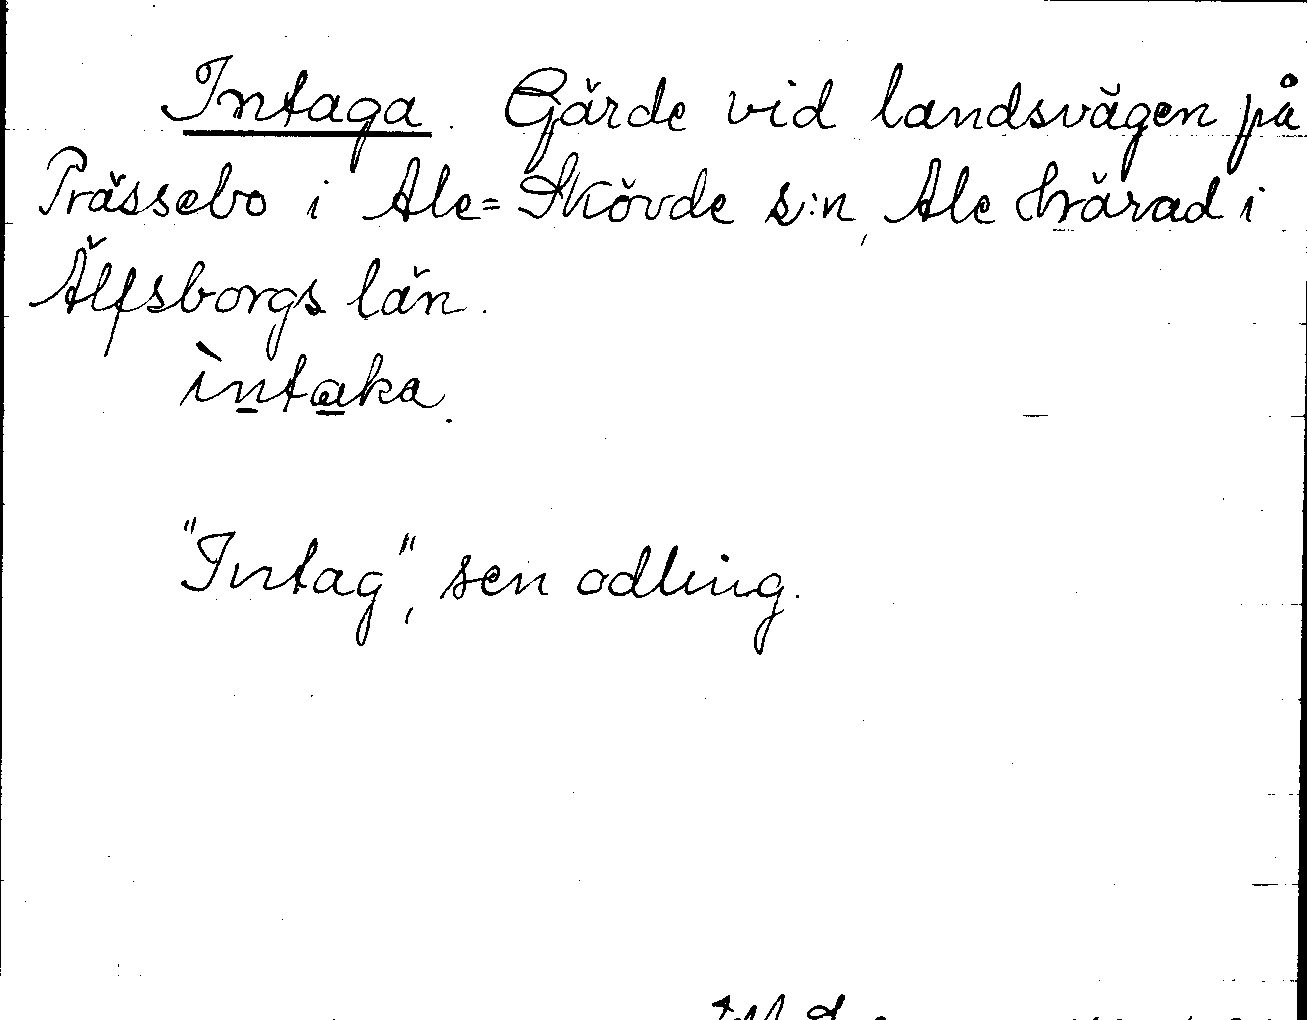 Intaga. Gärde vid landsvägen på
Prässebo i Ale=Skövde s:n, Ale härad i
Älfsborgs län.
ìntaka.
"Intag", sen odling.